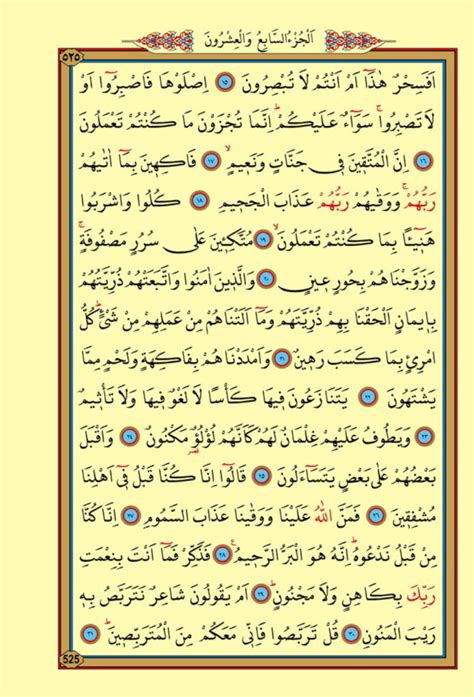 اَلْجُزْءُ السَّابِعُ وَالْعِشْرُونَ
٥٢٥
اَفَسِحْرٌ هٰذَٓا اَمْ اَنْتُمْ لَا تُبْصِرُونَ ١٥ اِصْلَوْهَا فَاصْبِرُٓوا اَوْ
لَا تَصْبِرُواۚ سَوَٓاءٌ عَلَيْكُمْۜ اِنَّمَا تُجْزَوْنَ مَا كُنْتُمْ تَعْمَلُونَ
١٦ اِنَّ الْمُتَّق۪ينَ ف۪ي جَنَّاتٍ وَنَع۪يمٍۙ ١٧ فَاكِه۪ينَ بِمَٓا اٰتٰيهُمْ
رَبُّهُمْۚ وَوَقٰيهُمْ رَبُّهُمْ عَذَابَ الْجَح۪يمِ ١٨ كُلُوا وَاشْرَبُوا
هَن۪ٓيـًٔا بِمَا كُنْتُمْ تَعْمَلُونَۙ ١٩ مُتَّكِـ۪ٔينَ عَلٰى سُرُرٍ مَصْفُوفَةٍۚ
وَزَوَّجْنَاهُمْ بِحُورٍ ع۪ينٍ ٢٠ وَالَّذ۪ينَ اٰمَنُوا وَاتَّبَعَتْهُمْ ذُرِّيَّتُهُمْ
بِا۪يمَانٍ اَلْحَقْنَا بِهِمْ ذُرِّيَّتَهُمْ وَمَٓا اَلَتْنَاهُمْ مِنْ عَمَلِهِمْ مِنْ شَيْءٍۜ كُلُّ
امْرِئٍ بِمَا كَسَبَ رَه۪ينٌ ٢١ وَاَمْدَدْنَاهُمْ بِفَاكِهَةٍ وَلَحْمٍ مِمَّا
يَشْتَهُونَ ٢٢ يَتَنَازَعُونَ ف۪يهَا كَأْسًا لَا لَغْوٌ ف۪يهَا وَلَا تَأْث۪يمٌ
٢٣ وَيَطُوفُ عَلَيْهِمْ غِلْمَانٌ لَهُمْ كَاَنَّهُمْ لُؤْلُؤٌ مَكْنُونٌ ٢٤ وَاَقْبَلَ
بَعْضُهُمْ عَلٰى بَعْضٍ يَتَسَٓاءَلُونَ ٢٥ قَالُٓوا اِنَّا كُنَّا قَبْلُ ف۪ٓي اَهْلِنَا
مُشْفِق۪ينَ ٢٦ فَمَنَّ اللّٰهُ عَلَيْنَا وَوَقٰينَا عَذَابَ السَّمُومِ ٢٧ اِنَّا كُنَّا
مِنْ قَبْلُ نَدْعُوهُۜ اِنَّهُ هُوَ الْبَرُّ الرَّح۪يمُ۟ ٢٨ فَذَكِّرْ فَمَٓا اَنْتَ بِنِعْمَتِ
رَبِّكَ بِكَاهِنٍ وَلَا مَجْنُونٍۜ ٢٩ اَمْ يَقُولُونَ شَاعِرٌ نَتَرَبَّصُ بِه۪
رَيْبَ الْمَنُونِ ٣٠ قُلْ تَرَبَّصُوا فَاِنّ۪ي مَعَكُمْ مِنَ الْمُتَرَبِّص۪ينَۜ ٣١
525